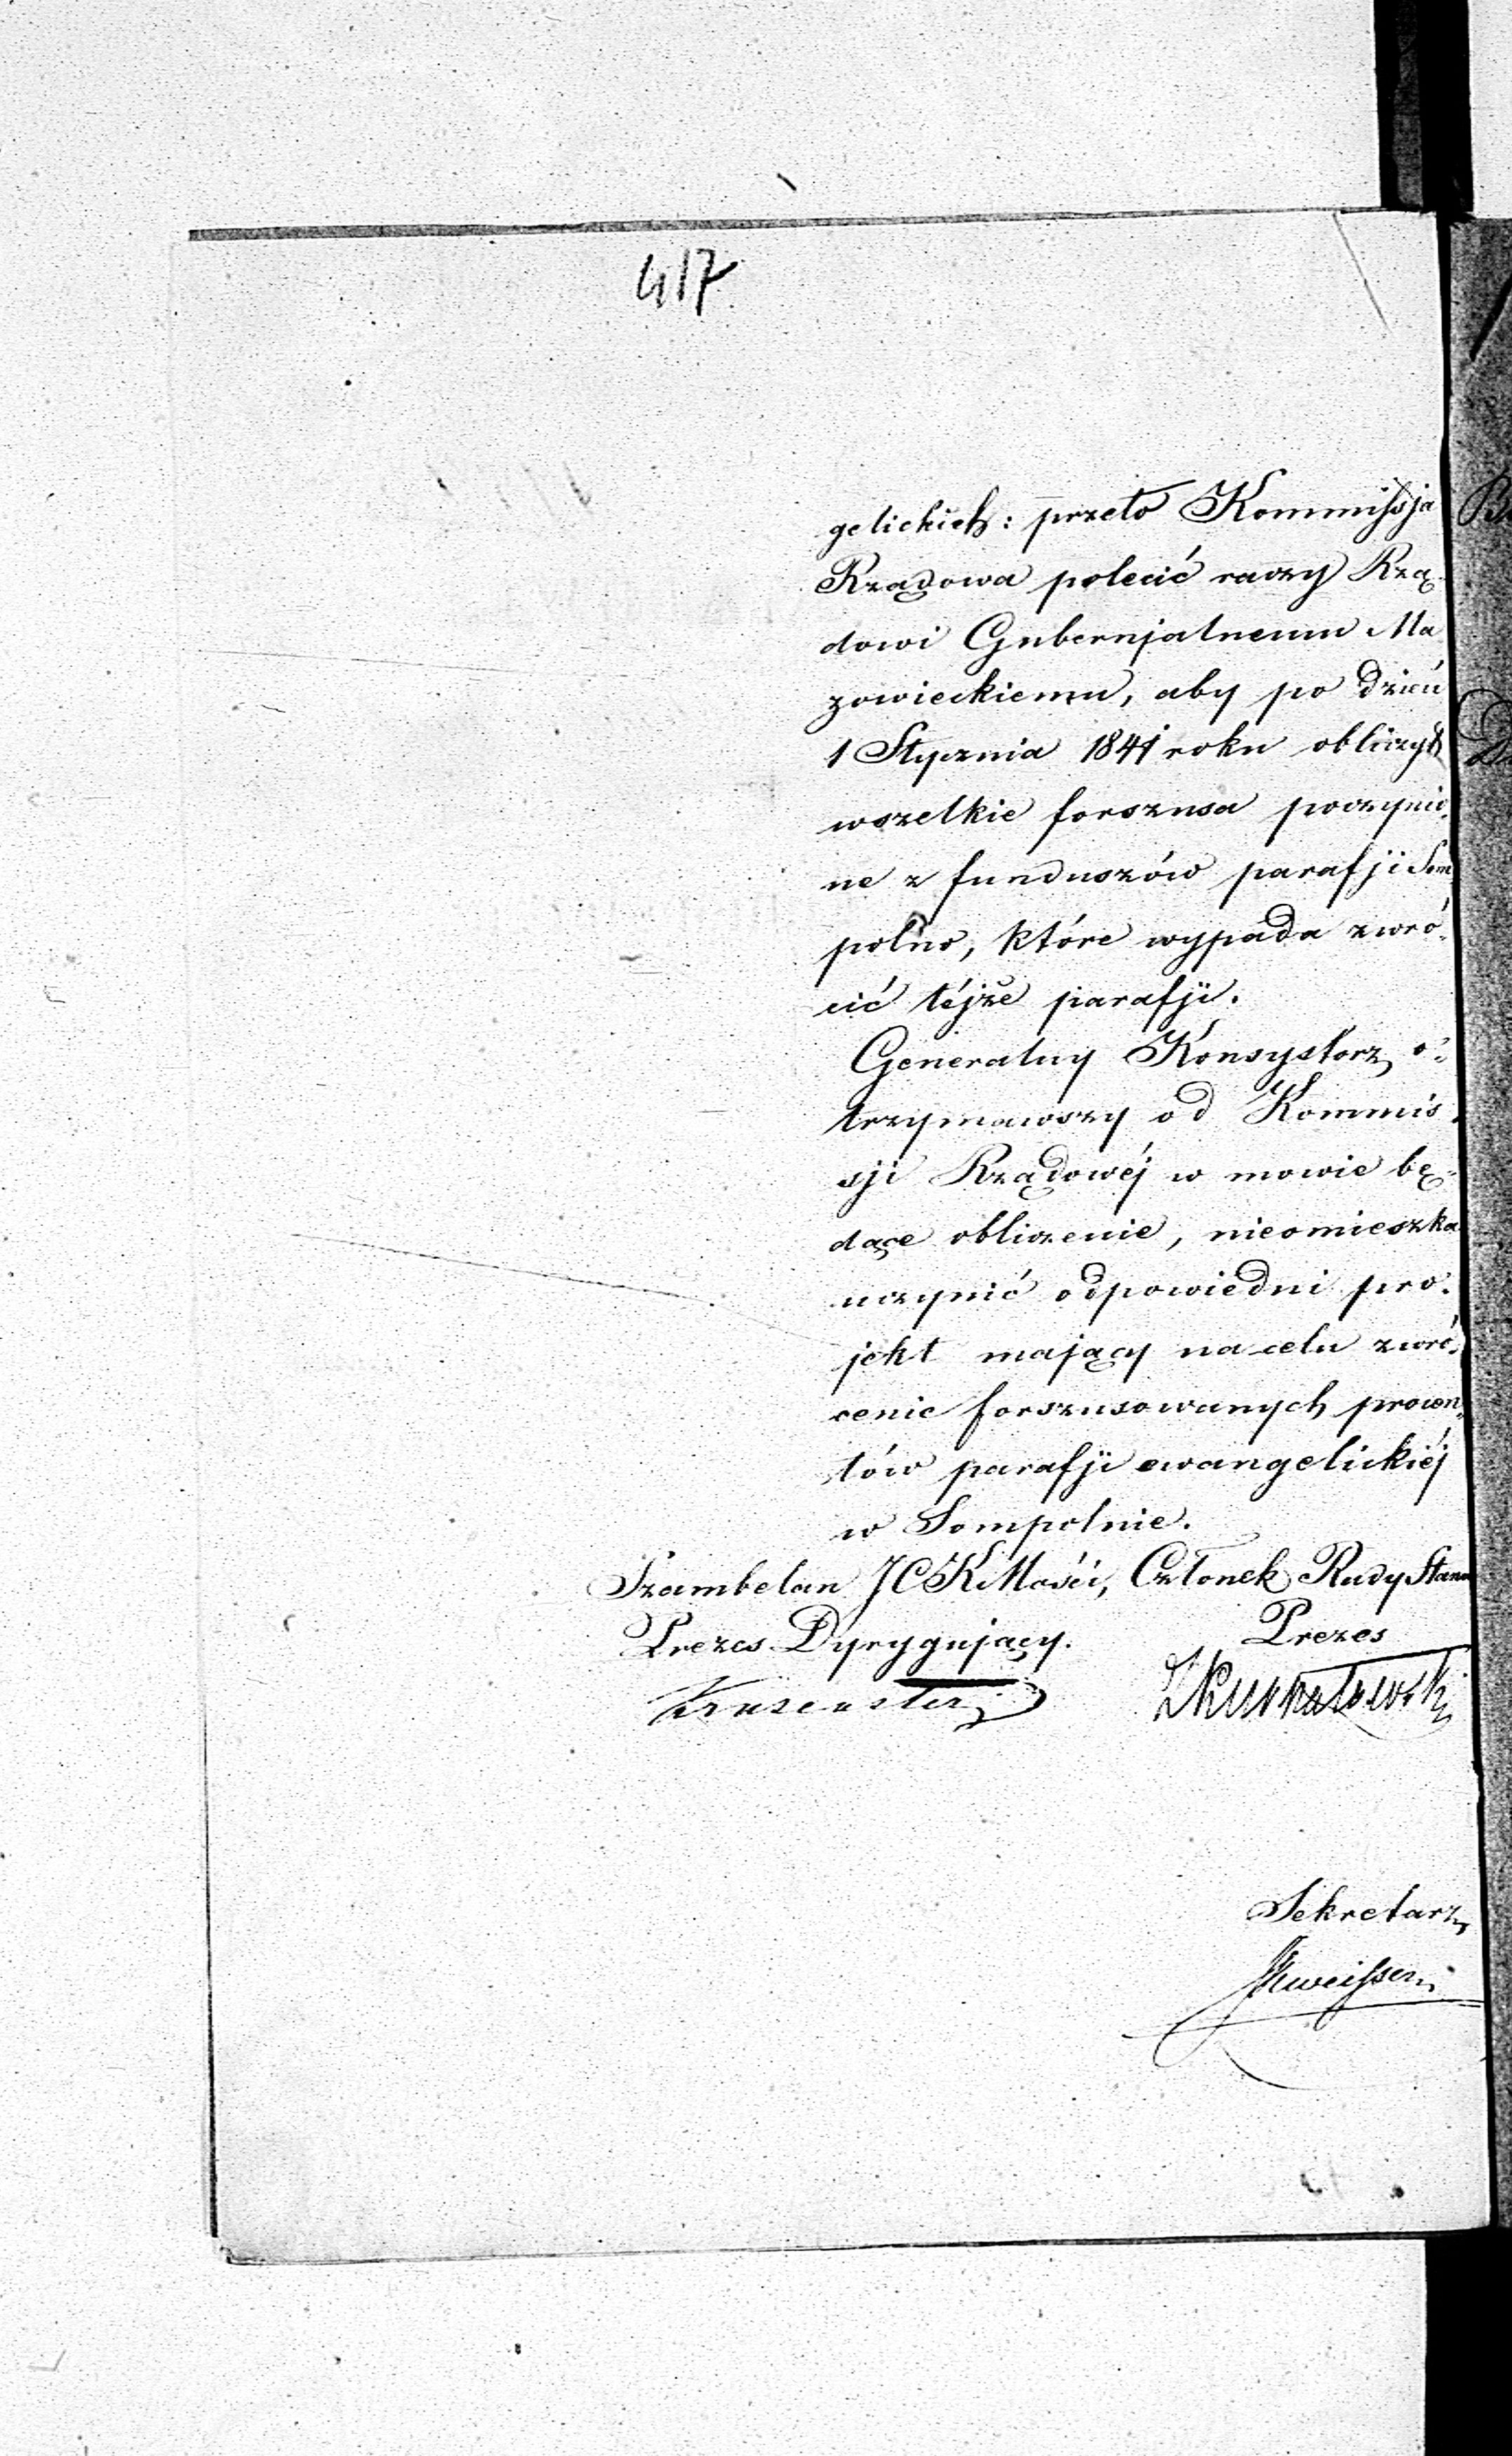 417
gelickich: przeto Kommissja
Rządowa polecić raczy Rzą-
dowi Gubernjalnemu Ma
zowieckiemu, aby po dzień
1 Stycznia 1841 roku obliczył
wszelkie forszusa poczynio-
ne z funduszów parafji Som
polno, które wypada zwró-
cić téjże parafji.
Generalny Konsystorz o-
trzymawszy od Kommis-
sji Rządowéj w mowie bę-
dące obliczenie, nieomieszka
uczynić odpowiedni pro-
jekt mający na celu zwró-
cenie forszusowanych procen-
tów parafji ewangelickiéj
w Sompolnie.
Szambelan JCKMości, Członek Rady Stanu
Prezes Dyrygujący. Prezes
Sekretarz